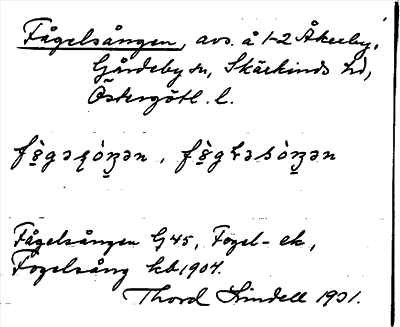 Fågelsången, avs. å 1-2 Åkerby,
Gårdeby sn, Skärkinds hd,
Östergötl. l.
Fågelsången G 45, Fogel- ek,
Fogelsång kb 1904.
Thord Lindell 1931.